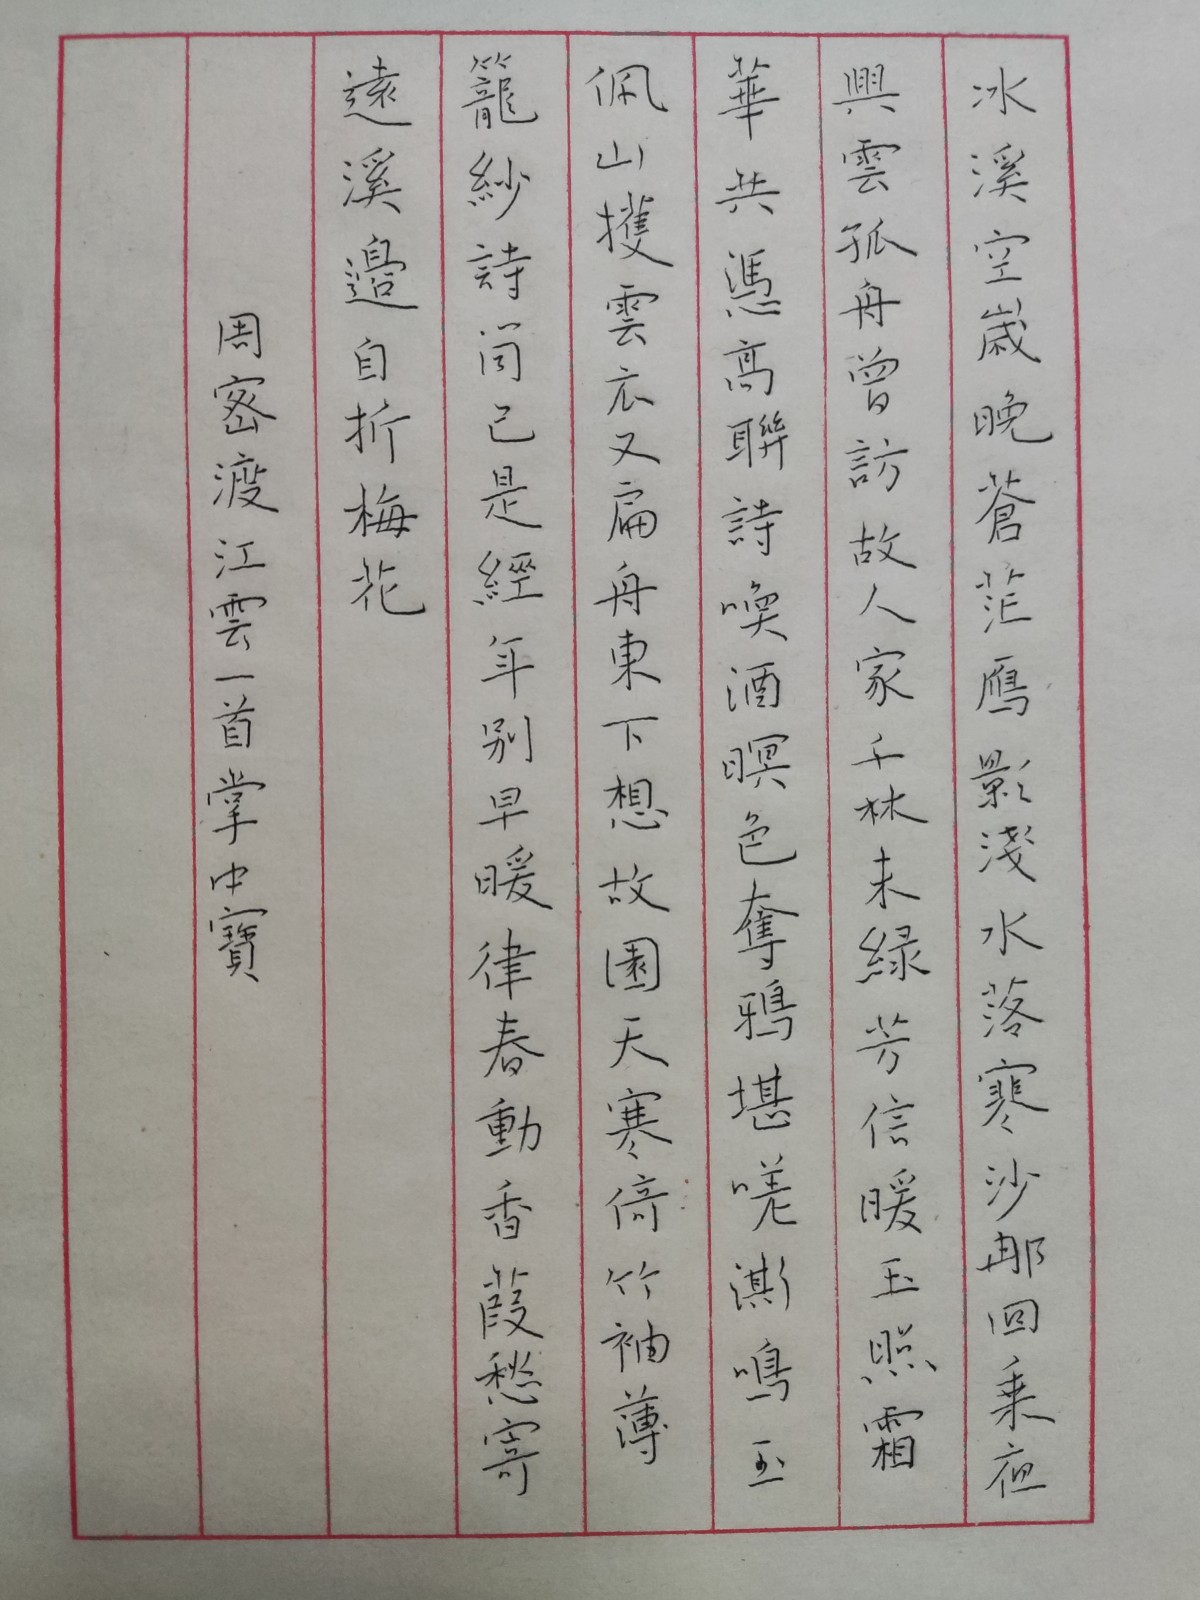 冰溪空歲晚蒼茫鴈影淺水落寒沙那回乘夜
興雲孤舟曾訪故人家千林未緑芳信暖玉照霜
華共憑高聯詩喚酒暝色奪鴉堪嗟澌鳴玉
佩山擭雲衣又扁舟東下想故園天寒倚竹袖薄
籠紗詩筒已是經年別早暖律春動香葭愁寄
遠溪邊自折梅花
周密渡江雲一首掌中寶